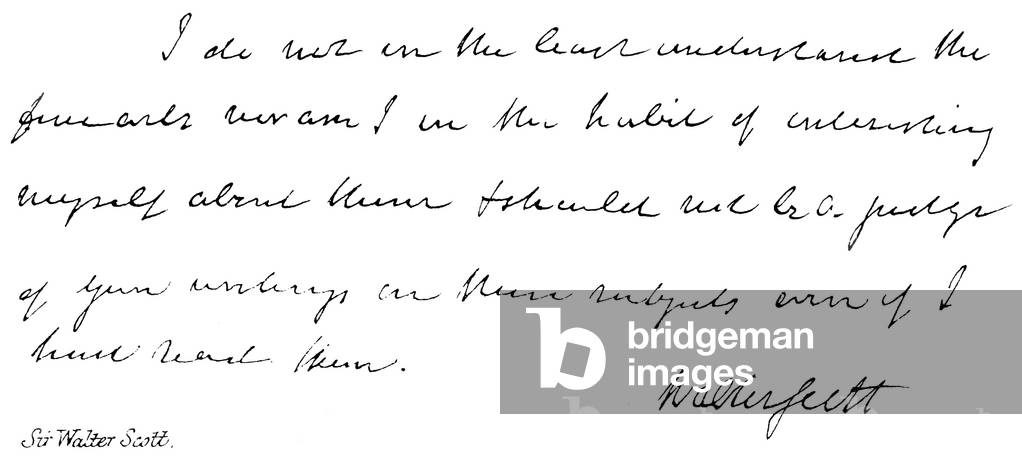 I do not in the least understand the
fine arts nor am I in the habit of interesting
myself about them & should not be a judge
of your writings on these subjects even if I
had read them.
Walter Scott
Sir Walter Scott.
b bridgeman
images